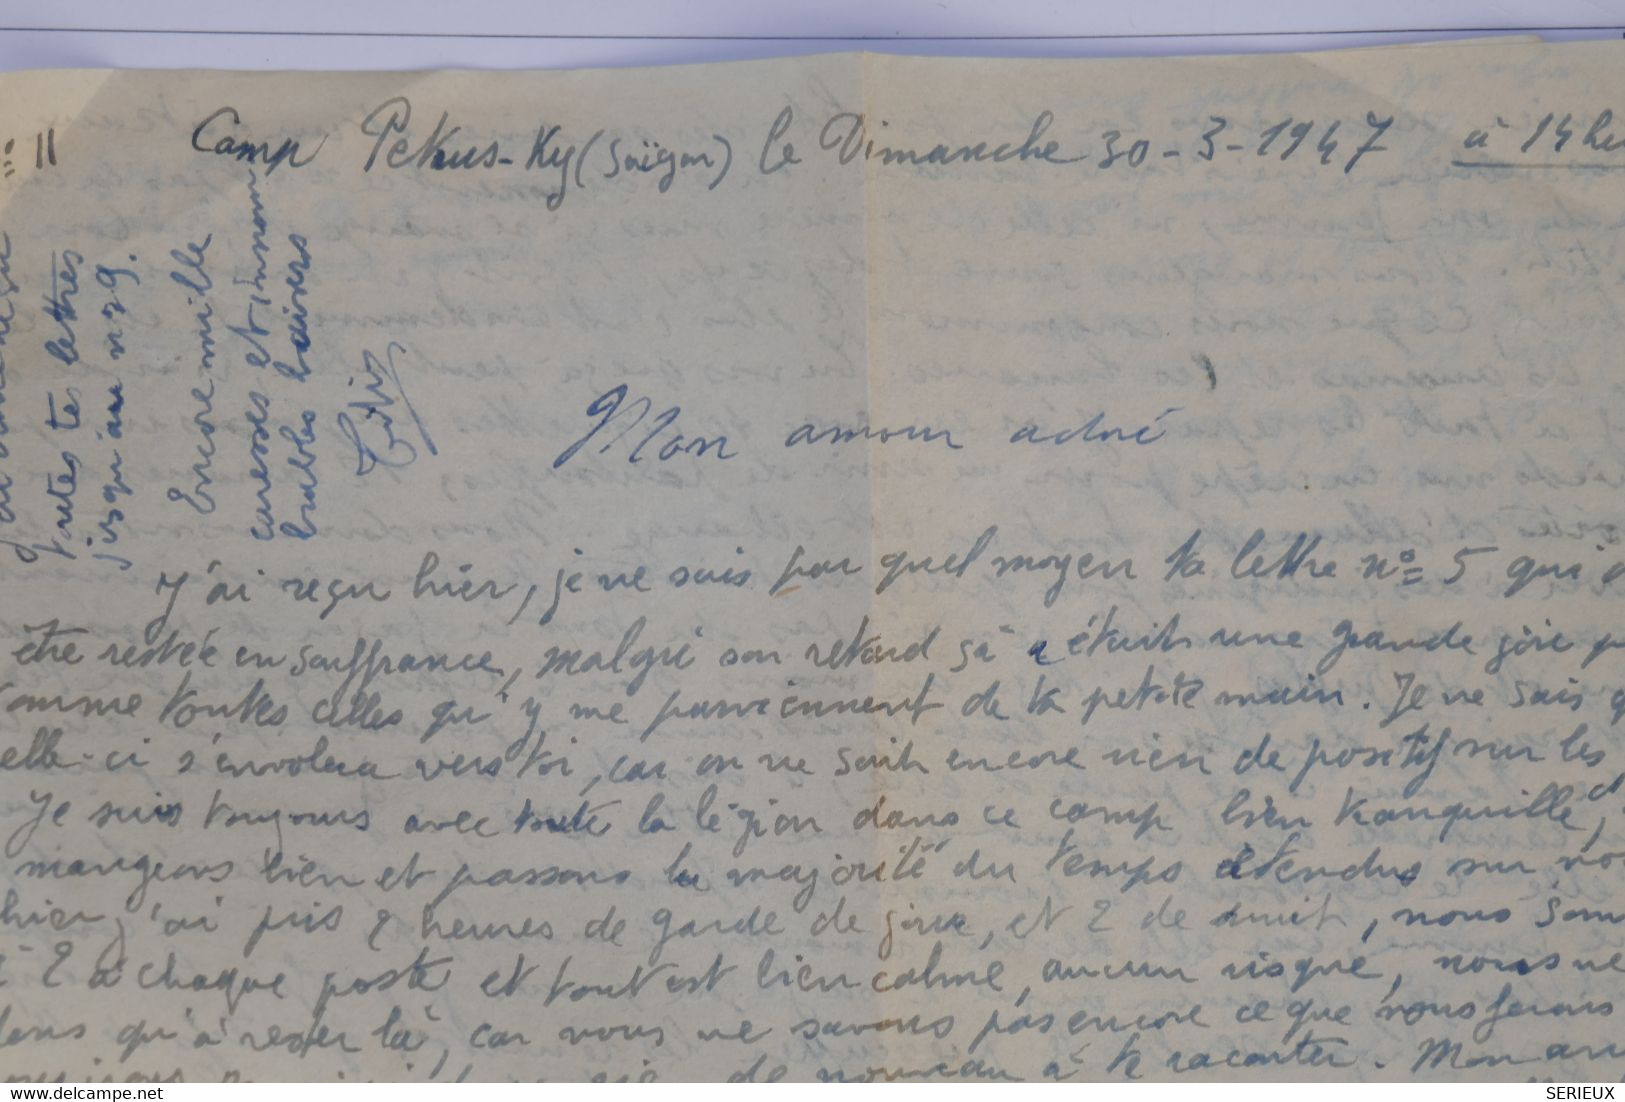 n° 11 Camp Petrus-Ky (Saïgon) le Dimanche 30-3-1947 à 14 heu
toutes tes lettres
jusqu'au n=9.
Encore mille
caresses et innom
brables baisers
Mon amour adoré
J'ai reçu hier, je ne sais par quel moyen ta lettre n°=5 qui a
être restée en souffrance, malgré son retard sà a était une grande joie p
comme toutes celles qu'y me parviennent de ta petite main. Je ne sais q
elle-ci s'envolera vers toi, car on ne sait encore rien de positif sur les
Je suis toujours avec toute la légion dans ce camp bien tranquille, et
mangeons bien et passons la majorité du temps étendus sur nos
hier j'ai pris 2 heures de garde de jour, et 2 de nuit, nous som
à 2 à chaque poste et tout est bien calme, aucun risque, nous ne
qu'à rester là, car nous ne savons pas encore ce que nous ferons
de nouveau à te raconter. Mon am
SERIEUX